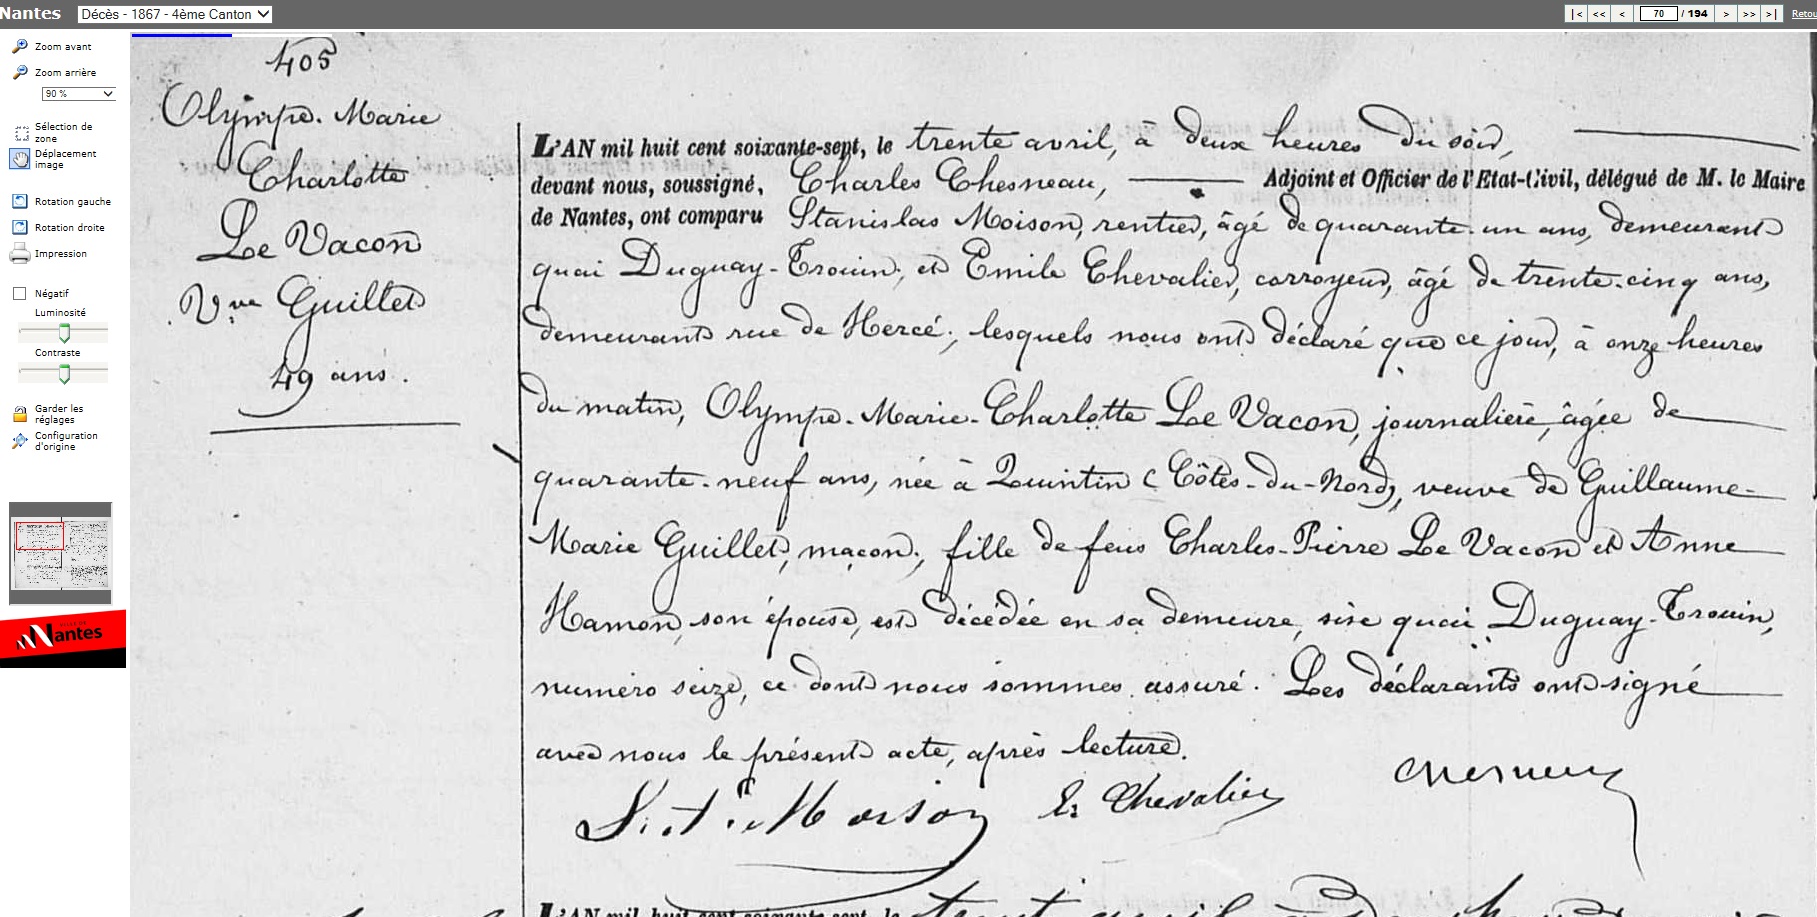 Nantes
Décès - 1867 - 4ème Canton
|< << < 70 / 194 > >> >|
Retou
Zoom avant
Zoom arrière
90 %
Sélection de
zone
Déplacement
image
Rotation gauche
Rotation droite
Impression
Négatif
Luminosité
Contraste
Garder les
réglages
Configuration
d'origine
Nantes
405
Olympe-Marie
Charlotte
Le Vacon
Vve Guillet
49 ans.
L'AN mil huit cent soixante-sept, le trente avril, à deux heures du soir,
devant nous, soussigné, Charles Chesneau, Adjoint et Officier de l'Etat-Civil, délégué de M. le Maire
de Nantes, ont comparu Stanislas Moison, rentier, âgé de quarante-un ans, demeurant
quai Duguay-Trouin; et Emile Chevalier, corroyeur, âgé de trente-cinq ans,
demeurant rue de Hercé; lesquels nous ont déclaré que ce jour, à onze heures
du matin, Olympe-Marie-Charlotte Le Vacon, journalière, âgée de
quarante-neuf ans, née à Quintin (Côtes-du-Nord), veuve de Guillaume-
Marie Guillet, maçon; fille de feus Charles-Pierre Le Vacon et Anne
Hamon, son épouse, est décédée en sa demeure, sise quai Duguay-Trouin,
numéro seize, ce dont nous sommes assuré. Les déclarants ont signé
avec nous le présent acte, après lecture.
St. Moison E. Chevalier Chesneau
L'AN mil huit cent soixante-sept, le trente avril à